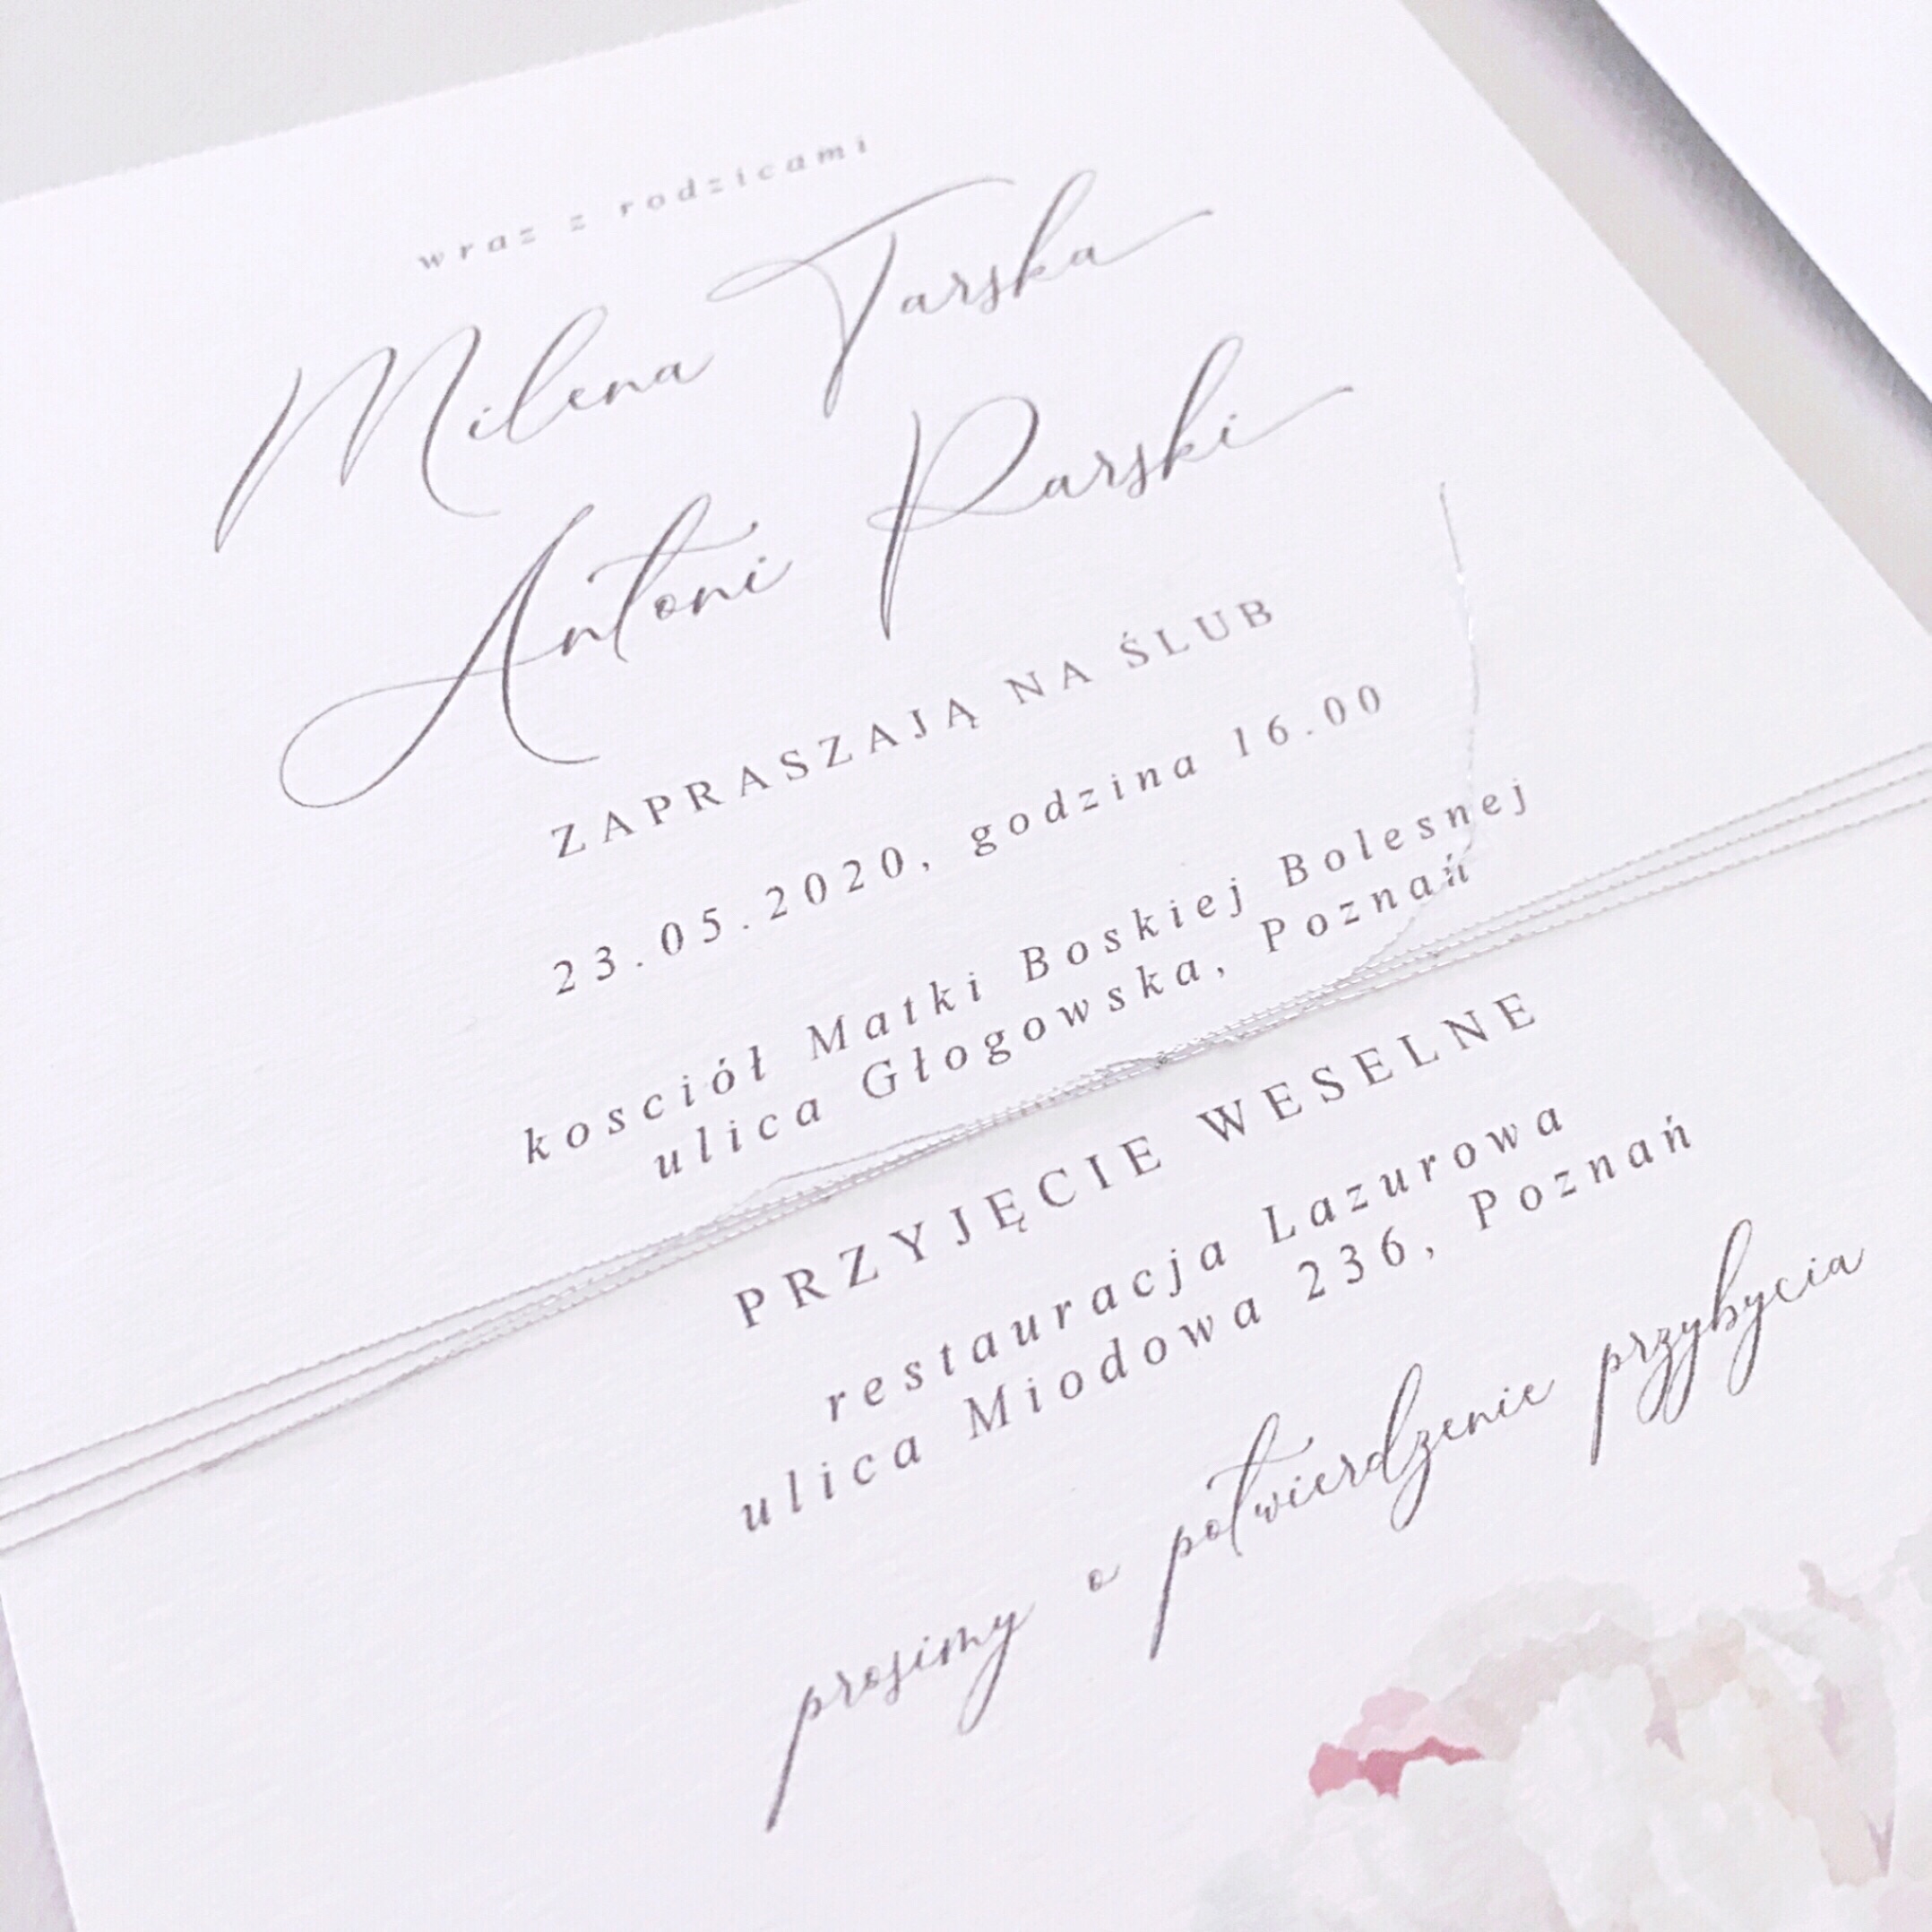 wraz z rodzicami
Milena Tarska
Antoni Parski
ZAPRASZAJĄ NA ŚLUB
23.05.2020, godzina 16.00
kosciół Matki Boskiej Bolesnej
ulica Głogowska, Poznań
PRZYJĘCIE WESELNE
restauracja Lazurowa
ulica Miodowa 236, Poznań
prosimy o potwierdzenie przybycia